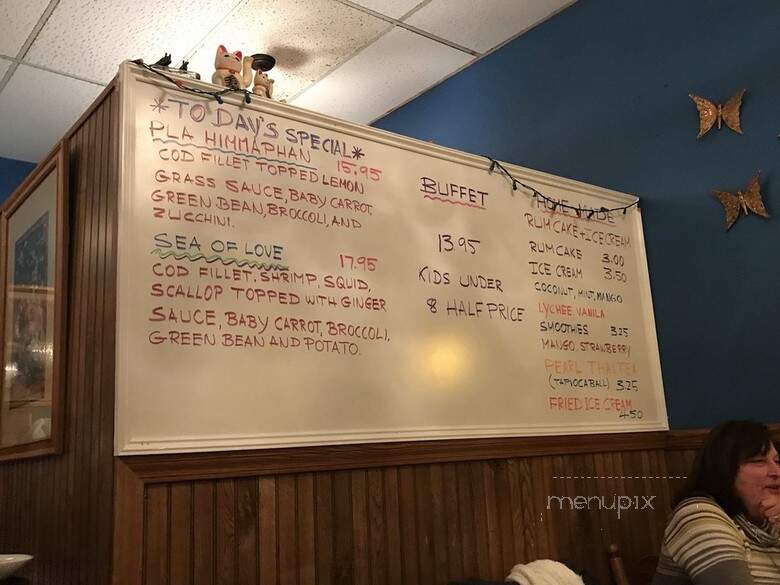 *TODAY'S SPECIAL*
PLA HIMMAPHAN 15.95
COD FILLET TOPPED LEMON
GRASS SAUCE, BABY CARROT,
GREEN BEAN, BROCCOLI, AND
ZUCCHINI.
SEA OF LOVE 17.95
COD FILLET, SHRIMP, SQUID,
SCALLOP TOPPED WITH GINGER
SAUCE, BABY CARROT, BROCCOLI,
GREEN BEAN AND POTATO.
BUFFET
13.95
KIDS UNDER
8 HALF PRICE
HOME MADE
RUM CAKE + ICE CREAM
RUM CAKE 3.00
ICE CREAM 3.50
COCONUT, MINT, MANGO
LYCHEE VANILA
SMOOTHIES 3.25
MANGO, STRAWBERRY
PEARL THAI TEA
(TAPIOCA BALL) 3.25
FRIED ICE CREAM
4.50
menupix